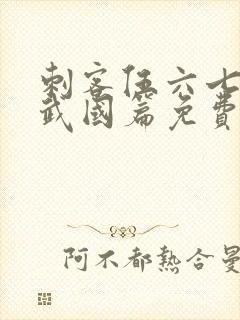 刺客伍六七
武國篇免費
阿不都熱合曼